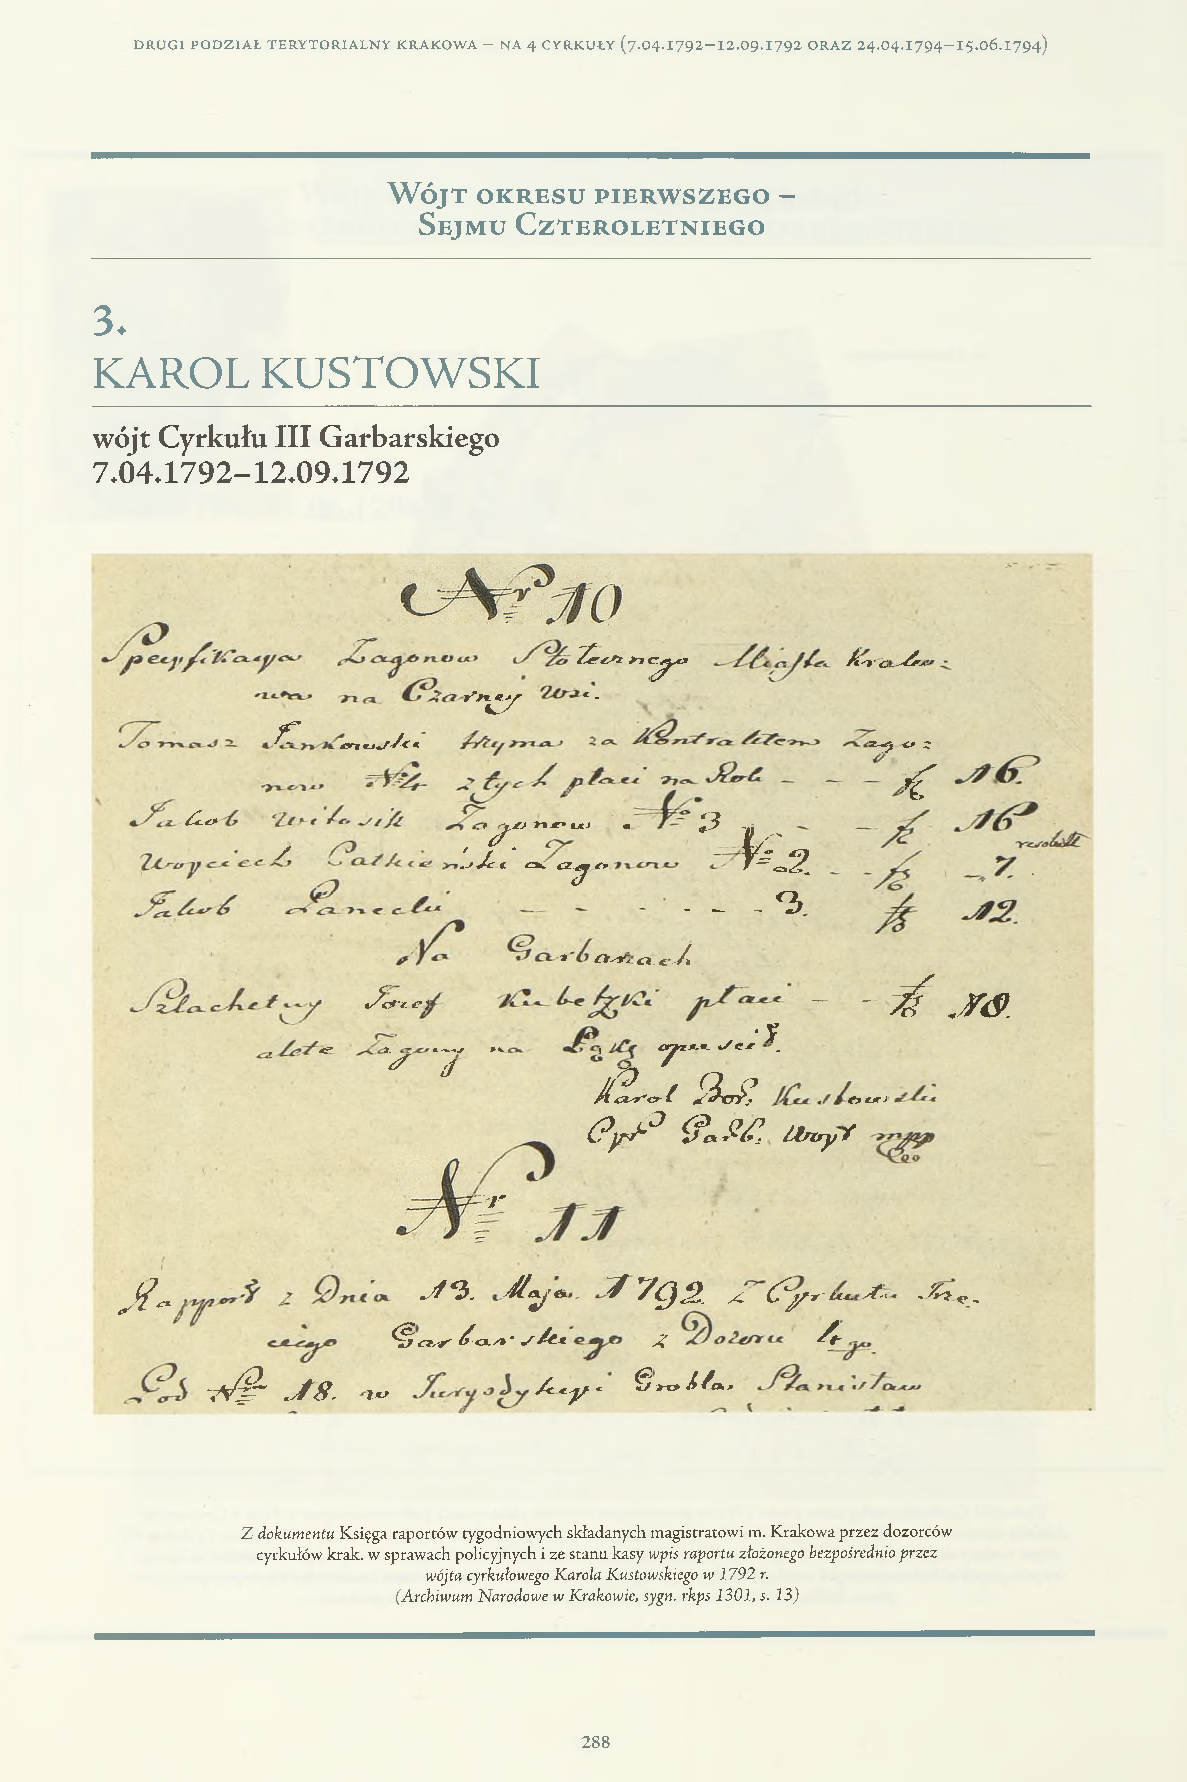 DRUGI PODZIAŁ TERYTORIALNY KRAKOWA – NA 4 CYRKUŁY (7.04.1792–12.09.1792 ORAZ 24.04.1794–15.06.1794)
Wójt okresu pierwszego –
Sejmu Czteroletniego
3.
KAROL KUSTOWSKI
wójt Cyrkułu III Garbarskiego
7.04.1792–12.09.1792
Nr 10
Specyfikacya Zagonow Stołecznego Miasta Krako=
wa na Czarney Wsi.
Tomasz Jankowski trzyma za Kontraktem Zago=
now No 4 z tych płaci na Rok – – – fl 16.
Jakob Witosik Zagonow No 3 – – fl 16
Woyciech Zagonow No 2. – – fl 7.
Jakob Panecki – – – – – – 3. fl 12.
Na Garbarzach
Szlachetny Jozef Kubetzki płaci – – fl 18.
aleте Zagony na Łąkę opuscił.
Karol Bor: Kustowski
Cyrk Garb: Woyt mpp
Nr 11
Rapport z Dnia 13. Maja. 1792. Z Cyrkułu Trze.
ciego Garbarskiego z Dozoru 4go.
Pod Nrm 18. w Jurysdykcyi Grobla Stanisław
Z dokumentu Księga raportów tygodniowych składanych magistratowi m. Krakowa przez dozorców
cyrkułów krak. w sprawach policyjnych i ze stanu kasy wpis raportu złożonego bezpośrednio przez
wójta cyrkułowego Karola Kustowskiego w 1792 r.
(Archiwum Narodowe w Krakowie, sygn. rkps 1301, s. 13)
288